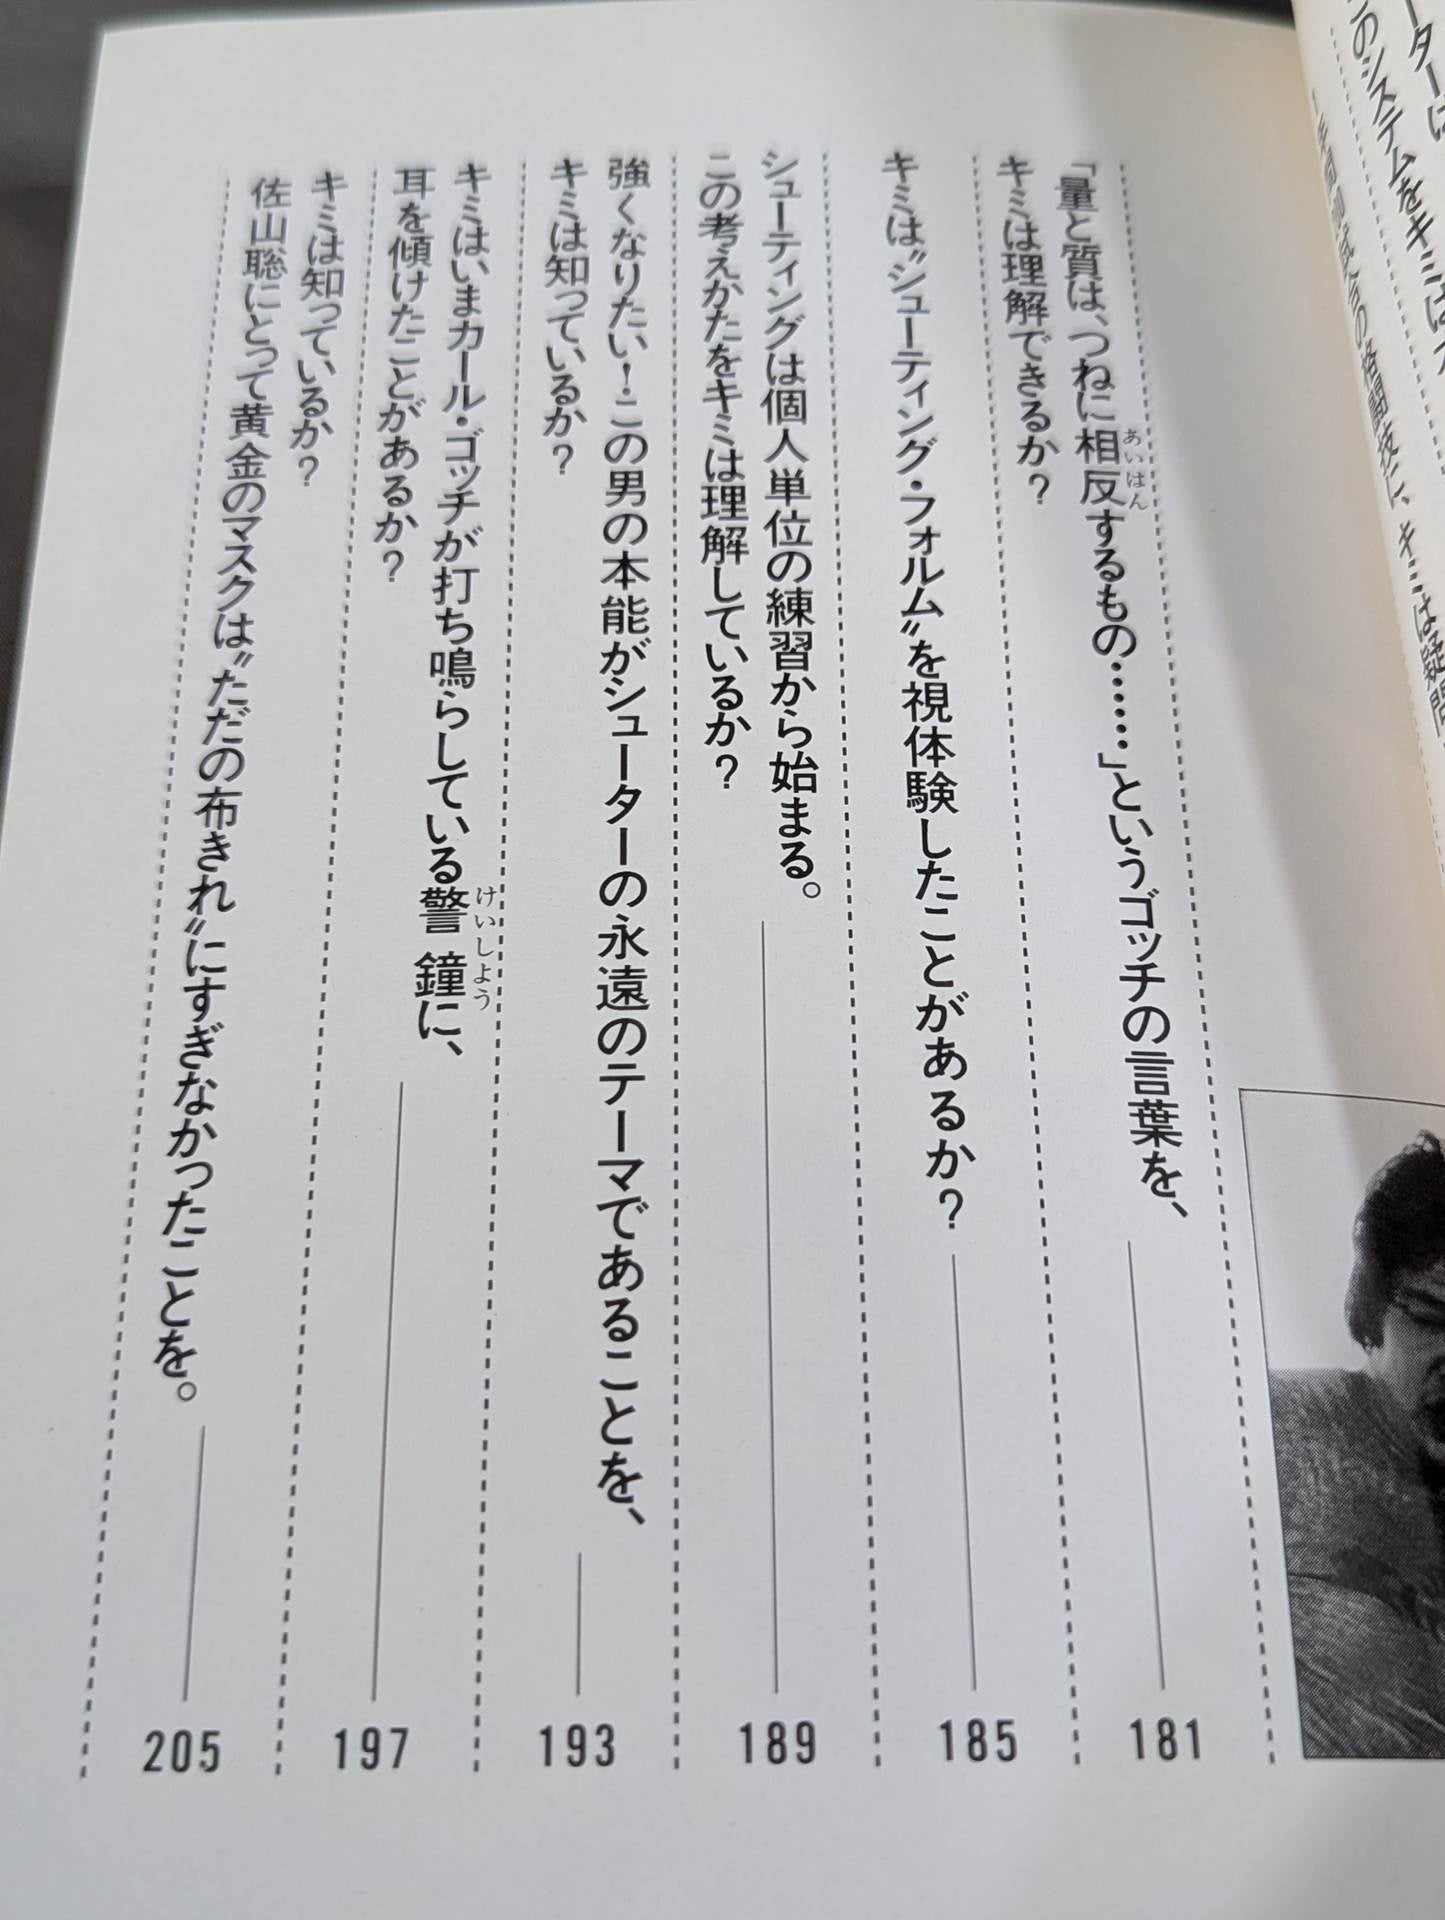 「量と質は、つねに相反するもの……」というゴッチの言葉を、
あいはん
キミは理解できるか?
181
キミは〝シューティング・フォルム〟を視体験したことがあるか?
185
シューティングは個人単位の練習から始まる。
この考えかたをキミは理解しているか?
189
強くなりたい!この男の本能がシューターの永遠のテーマであることを、
キミは知っているか?
193
キミはいまカール・ゴッチが打ち鳴らしている警鐘に、
けいしょう
耳を傾けたことがあるか?
197
キミは知っているか?
佐山聡にとって黄金のマスクは〝ただの布きれ〟にすぎなかったことを。
205